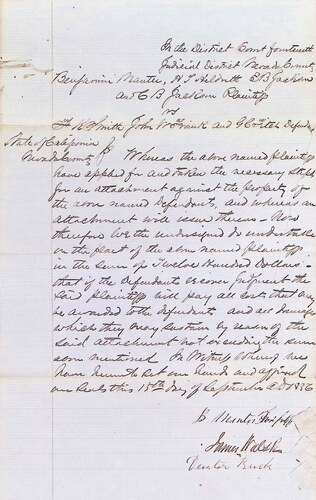 In the District Court fourteenth
Judicial District Nevada County
Benjamin Mantor, H. Hildreth E B Jackson
and C B Jackson Plaintiffs
vs
Smith John W Frank and Defendants
State of California
Nevada County Whereas the above named Plaintiffs
have applied for and taken the necessary steps
for an attachment against the property of
the above named Defendants, and whereas an
attachment will issue therein - Now
therefore We the undersigned do undertake
on the part of the above named Plaintiffs
in the sum of Twelve Hundred Dollars -
that if the Defendants recover Judgment the
Said Plaintiffs will pay all costs that may
be awarded to the defendants and all damages
which they may sustain by reason of the
Said attachment not exceeding the sum
above mentioned In Witness Whereof we
have hereunto set our hands and affixed
our Seals this 15th day of September A D 1856
B Mantor
James